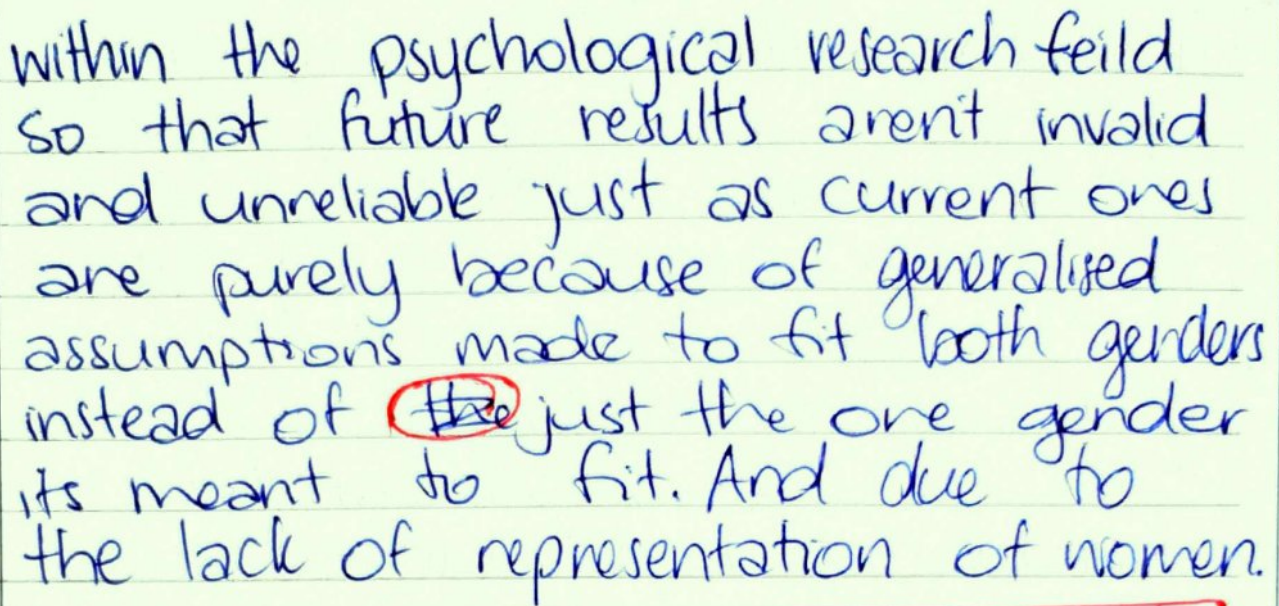 within the psychological research feild
so that future results aren't invalid
and unreliable just as current ones
are purely because of generalised
assumptions made to fit both genders
instead of the just the one gender
its meant to fit. And due to
the lack of representation of women.